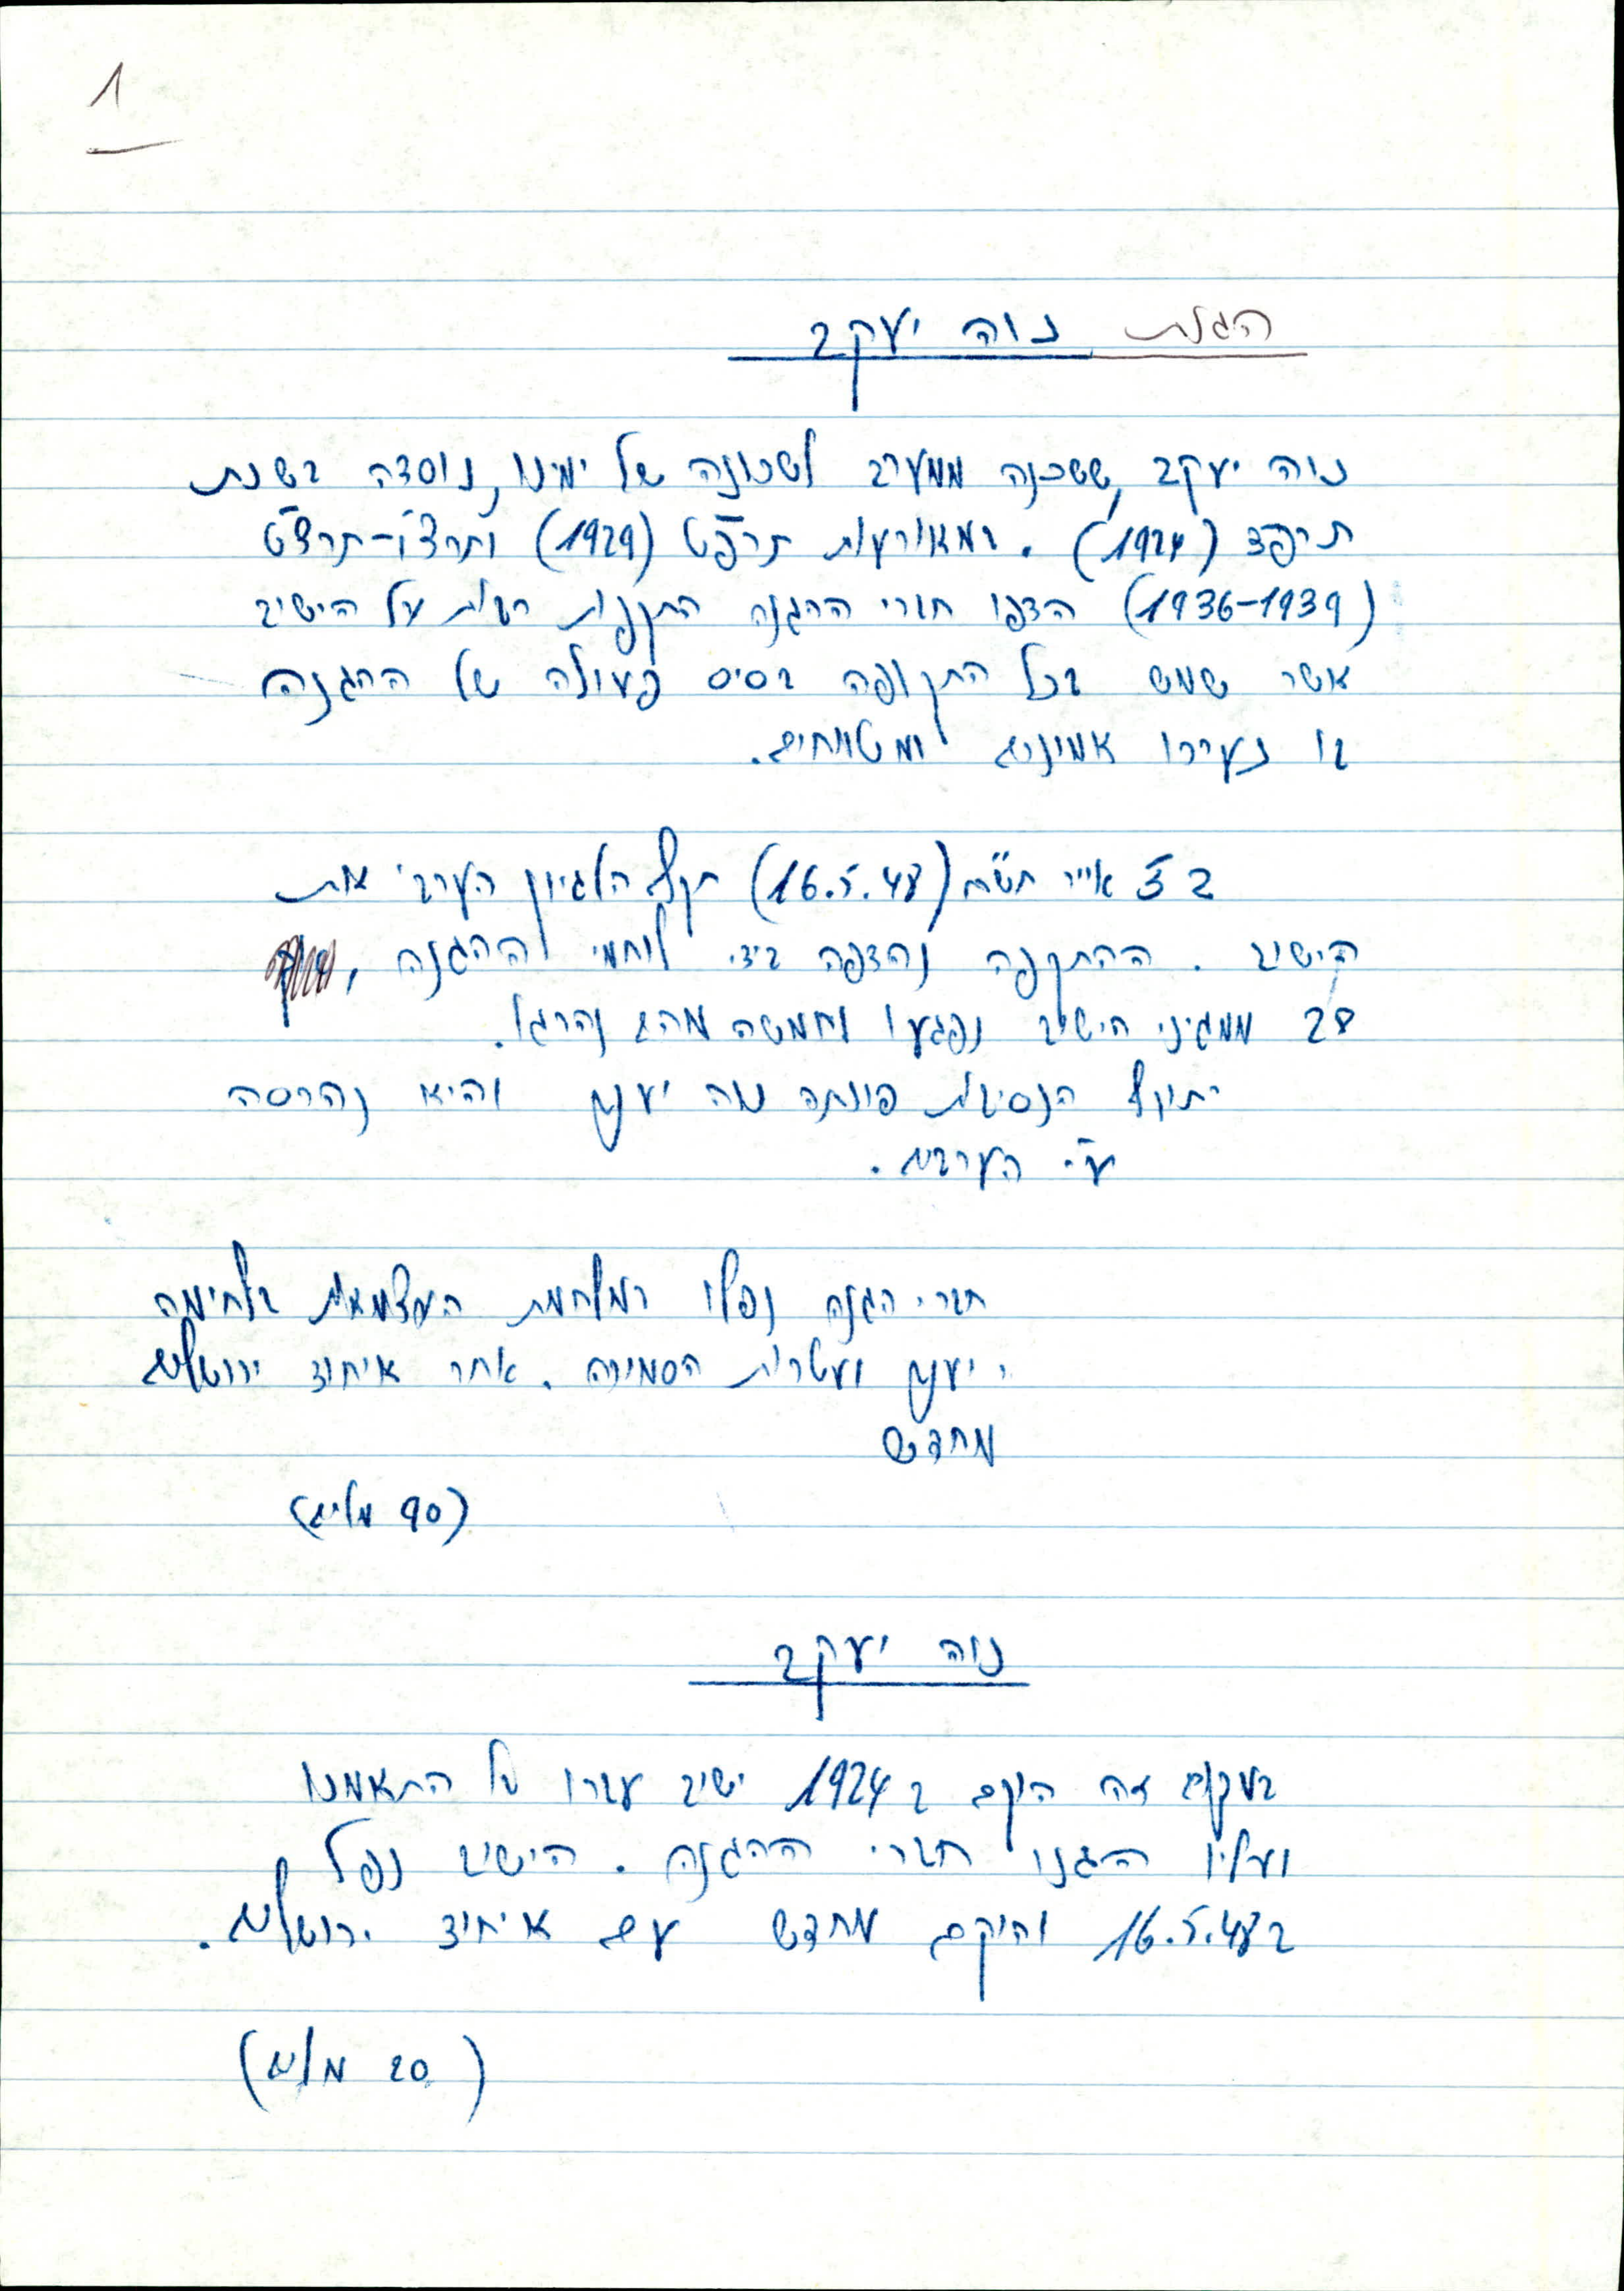 1
הגנת נוה יעקב
נוה יעקב, ששכנה ממערב לשכונה של ימינו, נוסדה בשנת
תרפד (1924). במאורעות תרפ"ט (1929) ותרצ"ו-תרצ"ט
(1936-1939) הדפו חברי ההגנה התקפות רבות על הישיב
אשר שמש בכל התקופה בסיס פעולה של ההגנה
בו נערכו אימונים ומטווחים.
ב ז' אייר תש"ח (16.5.48) תקף הלגיון הערבי את
הישיב. ההתקפה נהדפה בידי לוחמי ההגנה,
28 ממגיני הישיב נפגעו וחמשה מהם נהרגו.
בתוקף הנסיבות פונתה נוה יעקב והיא נהרסה
ע"י הערבים.
חברי הגנה נפלו במלחמת העצמאות בלחימה
יעקב ועטרות הסמוכה. אחר איחוד ירושלים
מחדש
(90 מלים)
נוה יעקב
במקום זה הוקם ב 1924 ישיב עברי בו התאמנו
ועליו הגנו חברי ההגנה. הישיב נפל
ב 16.5.48 והוקם מחדש עם איחוד ירושלים.
(20 מלים)